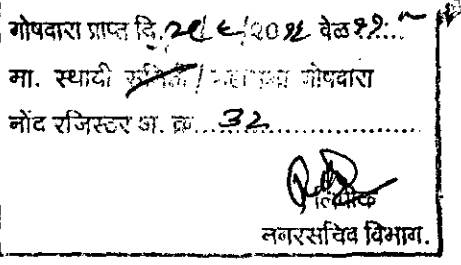 गोषवारा प्राप्त दि. 2९/६/20१६ वेळ ११:..
मा. स्थायी समिती / महासभा गोषवारा
नोंद रजिस्टर अ. क्र..... 32 ..........
लिपीक
नगरसचिव विभाग.